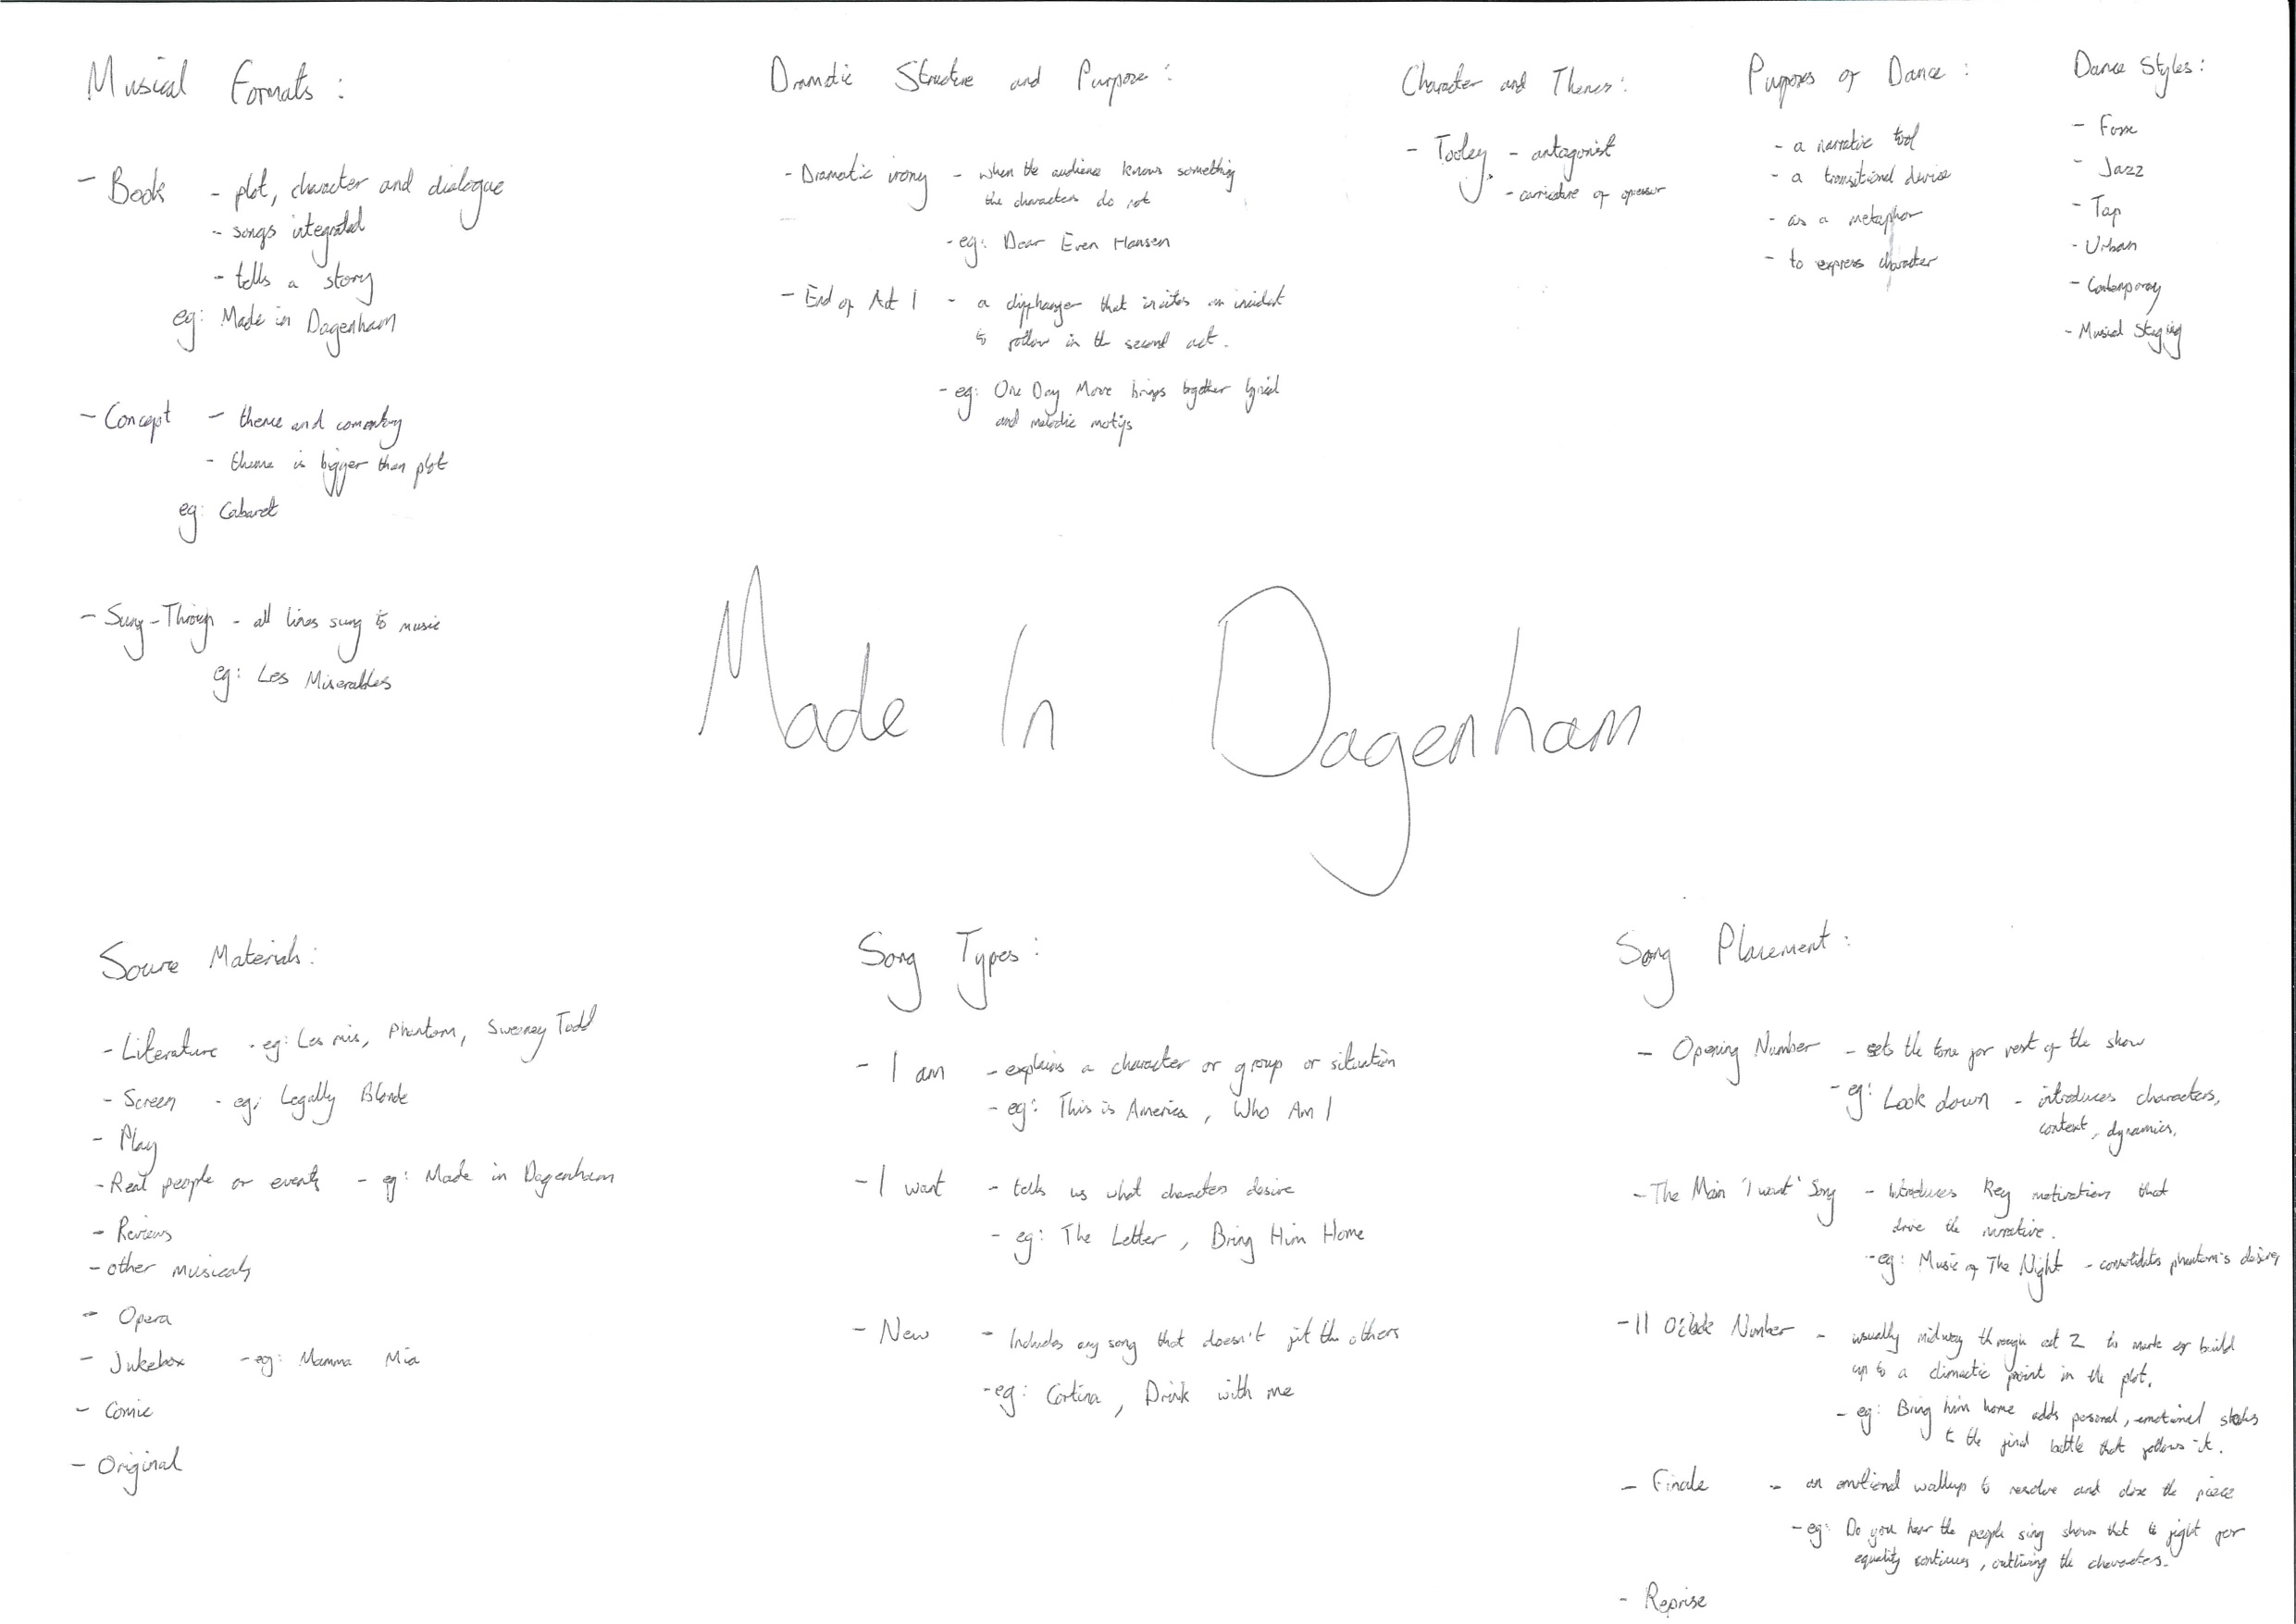 Musical Formats:
- Book - plot, character and dialogue
- songs integrated
- tells a story
eg: Made in Dagenham
- Concept - theme and commentary
- theme is bigger than plot
eg: Cabaret
- Sung-Through - all lines sung to music
eg: Les Miserables
Dramatic Structure and Purpose:
- Dramatic irony - when the audience knows something
the characters do not
- eg: Dear Even Hansen
- End of Act 1 - a cliffhanger that incites an incident
to follow in the second act.
- eg: One Day More brings together lyrical
and melodic motifs
Character and Themes:
- Tooley - antagonist
- caricature of
Purposes of Dance:
- a narrative tool
- a transitional device
- as a metaphor
- to express character
Dance Styles:
- Fosse
- Jazz
- Tap
- Urban
- Contemporary
- Musical Staging
Made In Dagenham
Source Materials:
- Literature - eg: Les mis, Phantom, Sweeney Todd
- Screen - eg: Legally Blonde
- Play
- Real people or events - eg: Made in Dagenham
- Reviews
- other musicals
- Opera
- Jukebox - eg: Mamma Mia
- Comic
- Original
Song Types:
- I am - explains a character or group or situation
- eg: This is America, Who Am I
- I want - tells us what characters desire
- eg: The Letter, Bring Him Home
- New - Includes any song that doesn't fit the others
- eg: Cortina, Drink with me
Song Placement:
- Opening Number - sets the tone for rest of the show
- eg: Look down - introduces characters,
context, dynamics.
- The Main 'I want' Song - Introduces key motivations that
drive the narrative.
- eg: Music of The Night - consolidates phantom's desires
- 11 O'clock Number - usually midway through act 2 to mark or build
up to a climactic point in the plot.
- eg: Bring him home adds personal, emotional stakes
to the final battle that follows it.
- Finale - an emotional wallup to resolve and close the piece
- eg: Do you hear the people sing shows that the fight for
equality continues, outliving the characters.
- Reprise